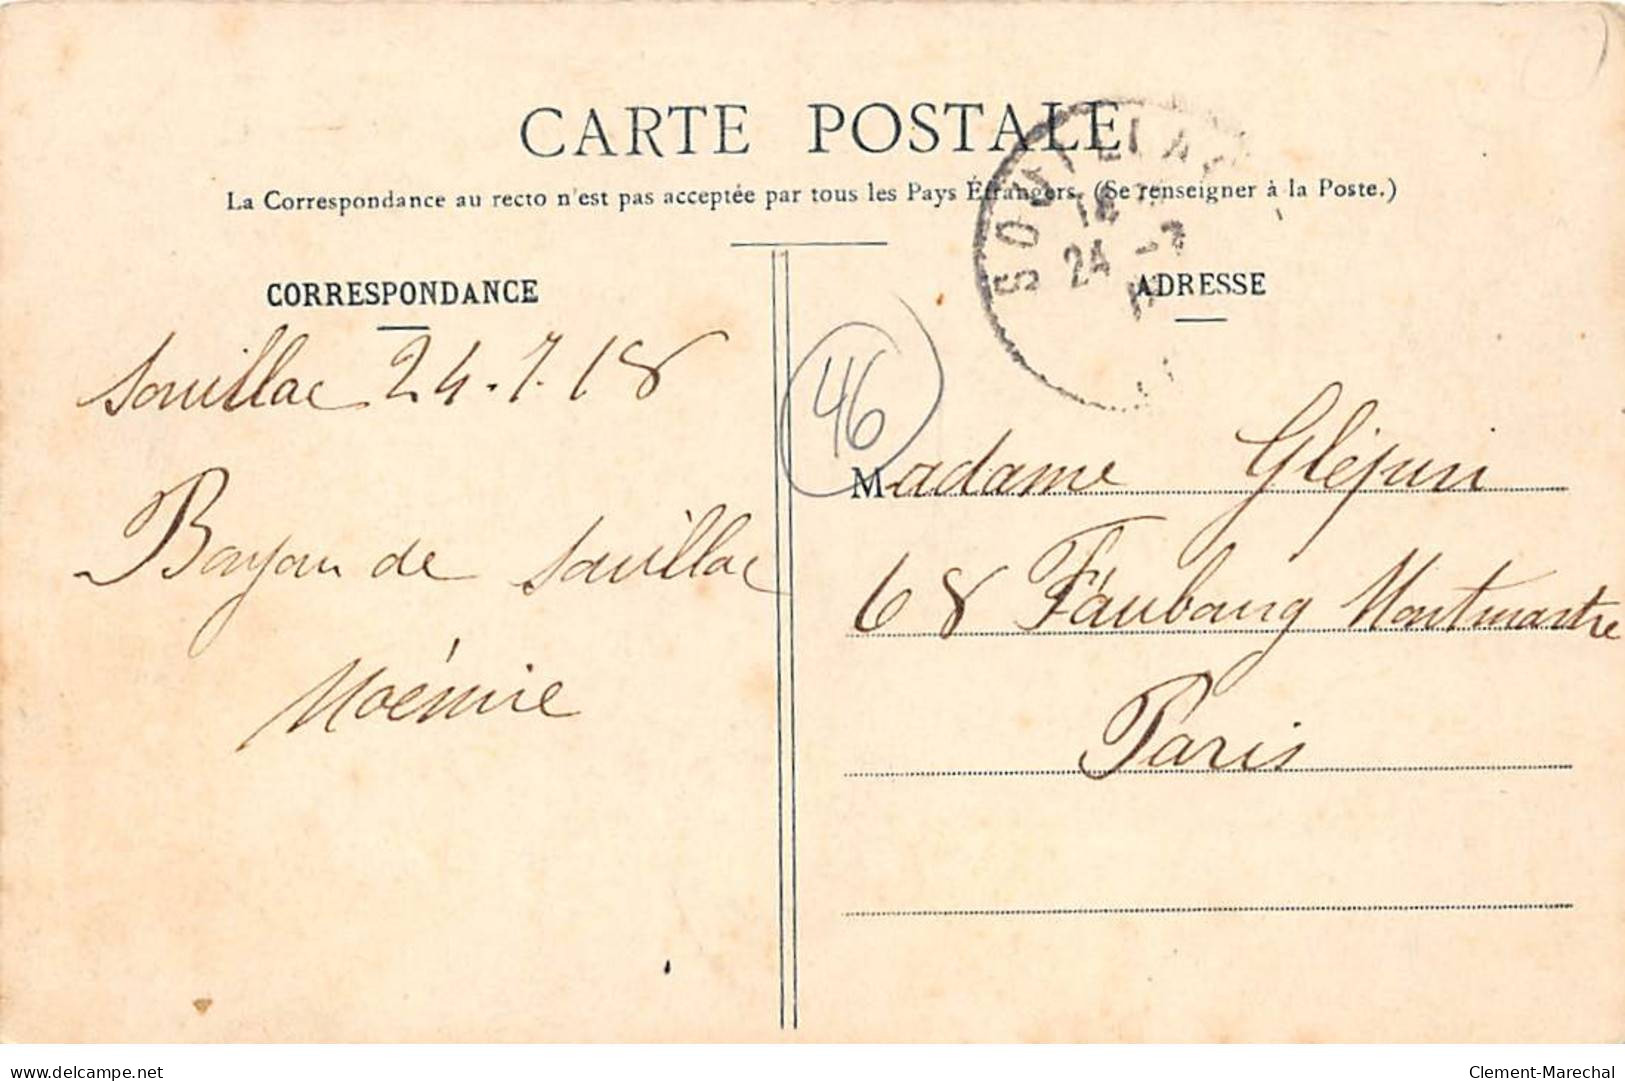 CARTE POSTALE
La Correspondance au recto n'est pas acceptée par tous les Pays Étrangers. (Se renseigner à la Poste.)
CORRESPONDANCE
Souillac 24.7.18
de Souillac
Noémie
ADRESSE
SOUILLAC
24 -7
46
Madame
68 Faubourg Montmartre
Paris
delcampe.net
Clement-Marechal